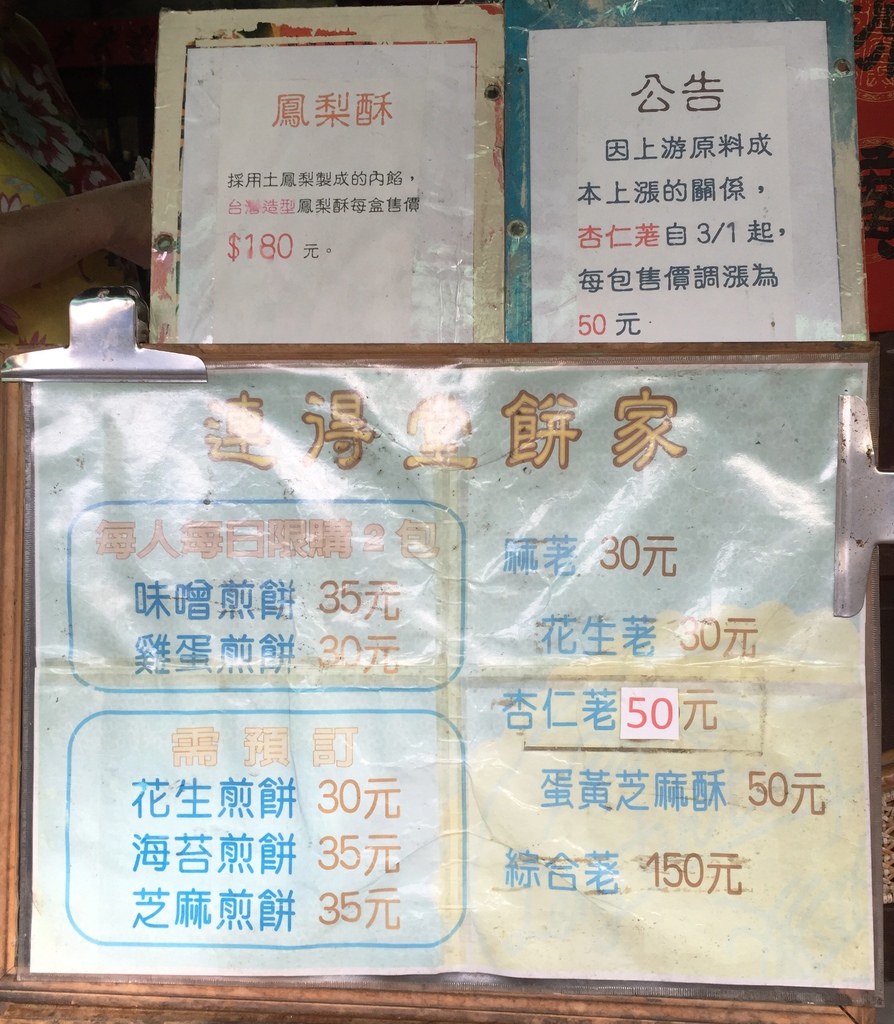 鳳梨酥
採用土鳳梨製成的內餡，
台灣造型鳳梨酥每盒售價
$180 元。
公告
因上游原料成
本上漲的關係，
杏仁荖自 3/1 起，
每包售價調漲為
50 元
連得堂餅家
每人每日限購2包
味噌煎餅 35元
雞蛋煎餅 30元
需預訂
花生煎餅 30元
海苔煎餅 35元
芝麻煎餅 35元
麻荖 30元
花生荖 30元
杏仁荖 50元
蛋黃芝麻酥 50元
綜合荖 150元